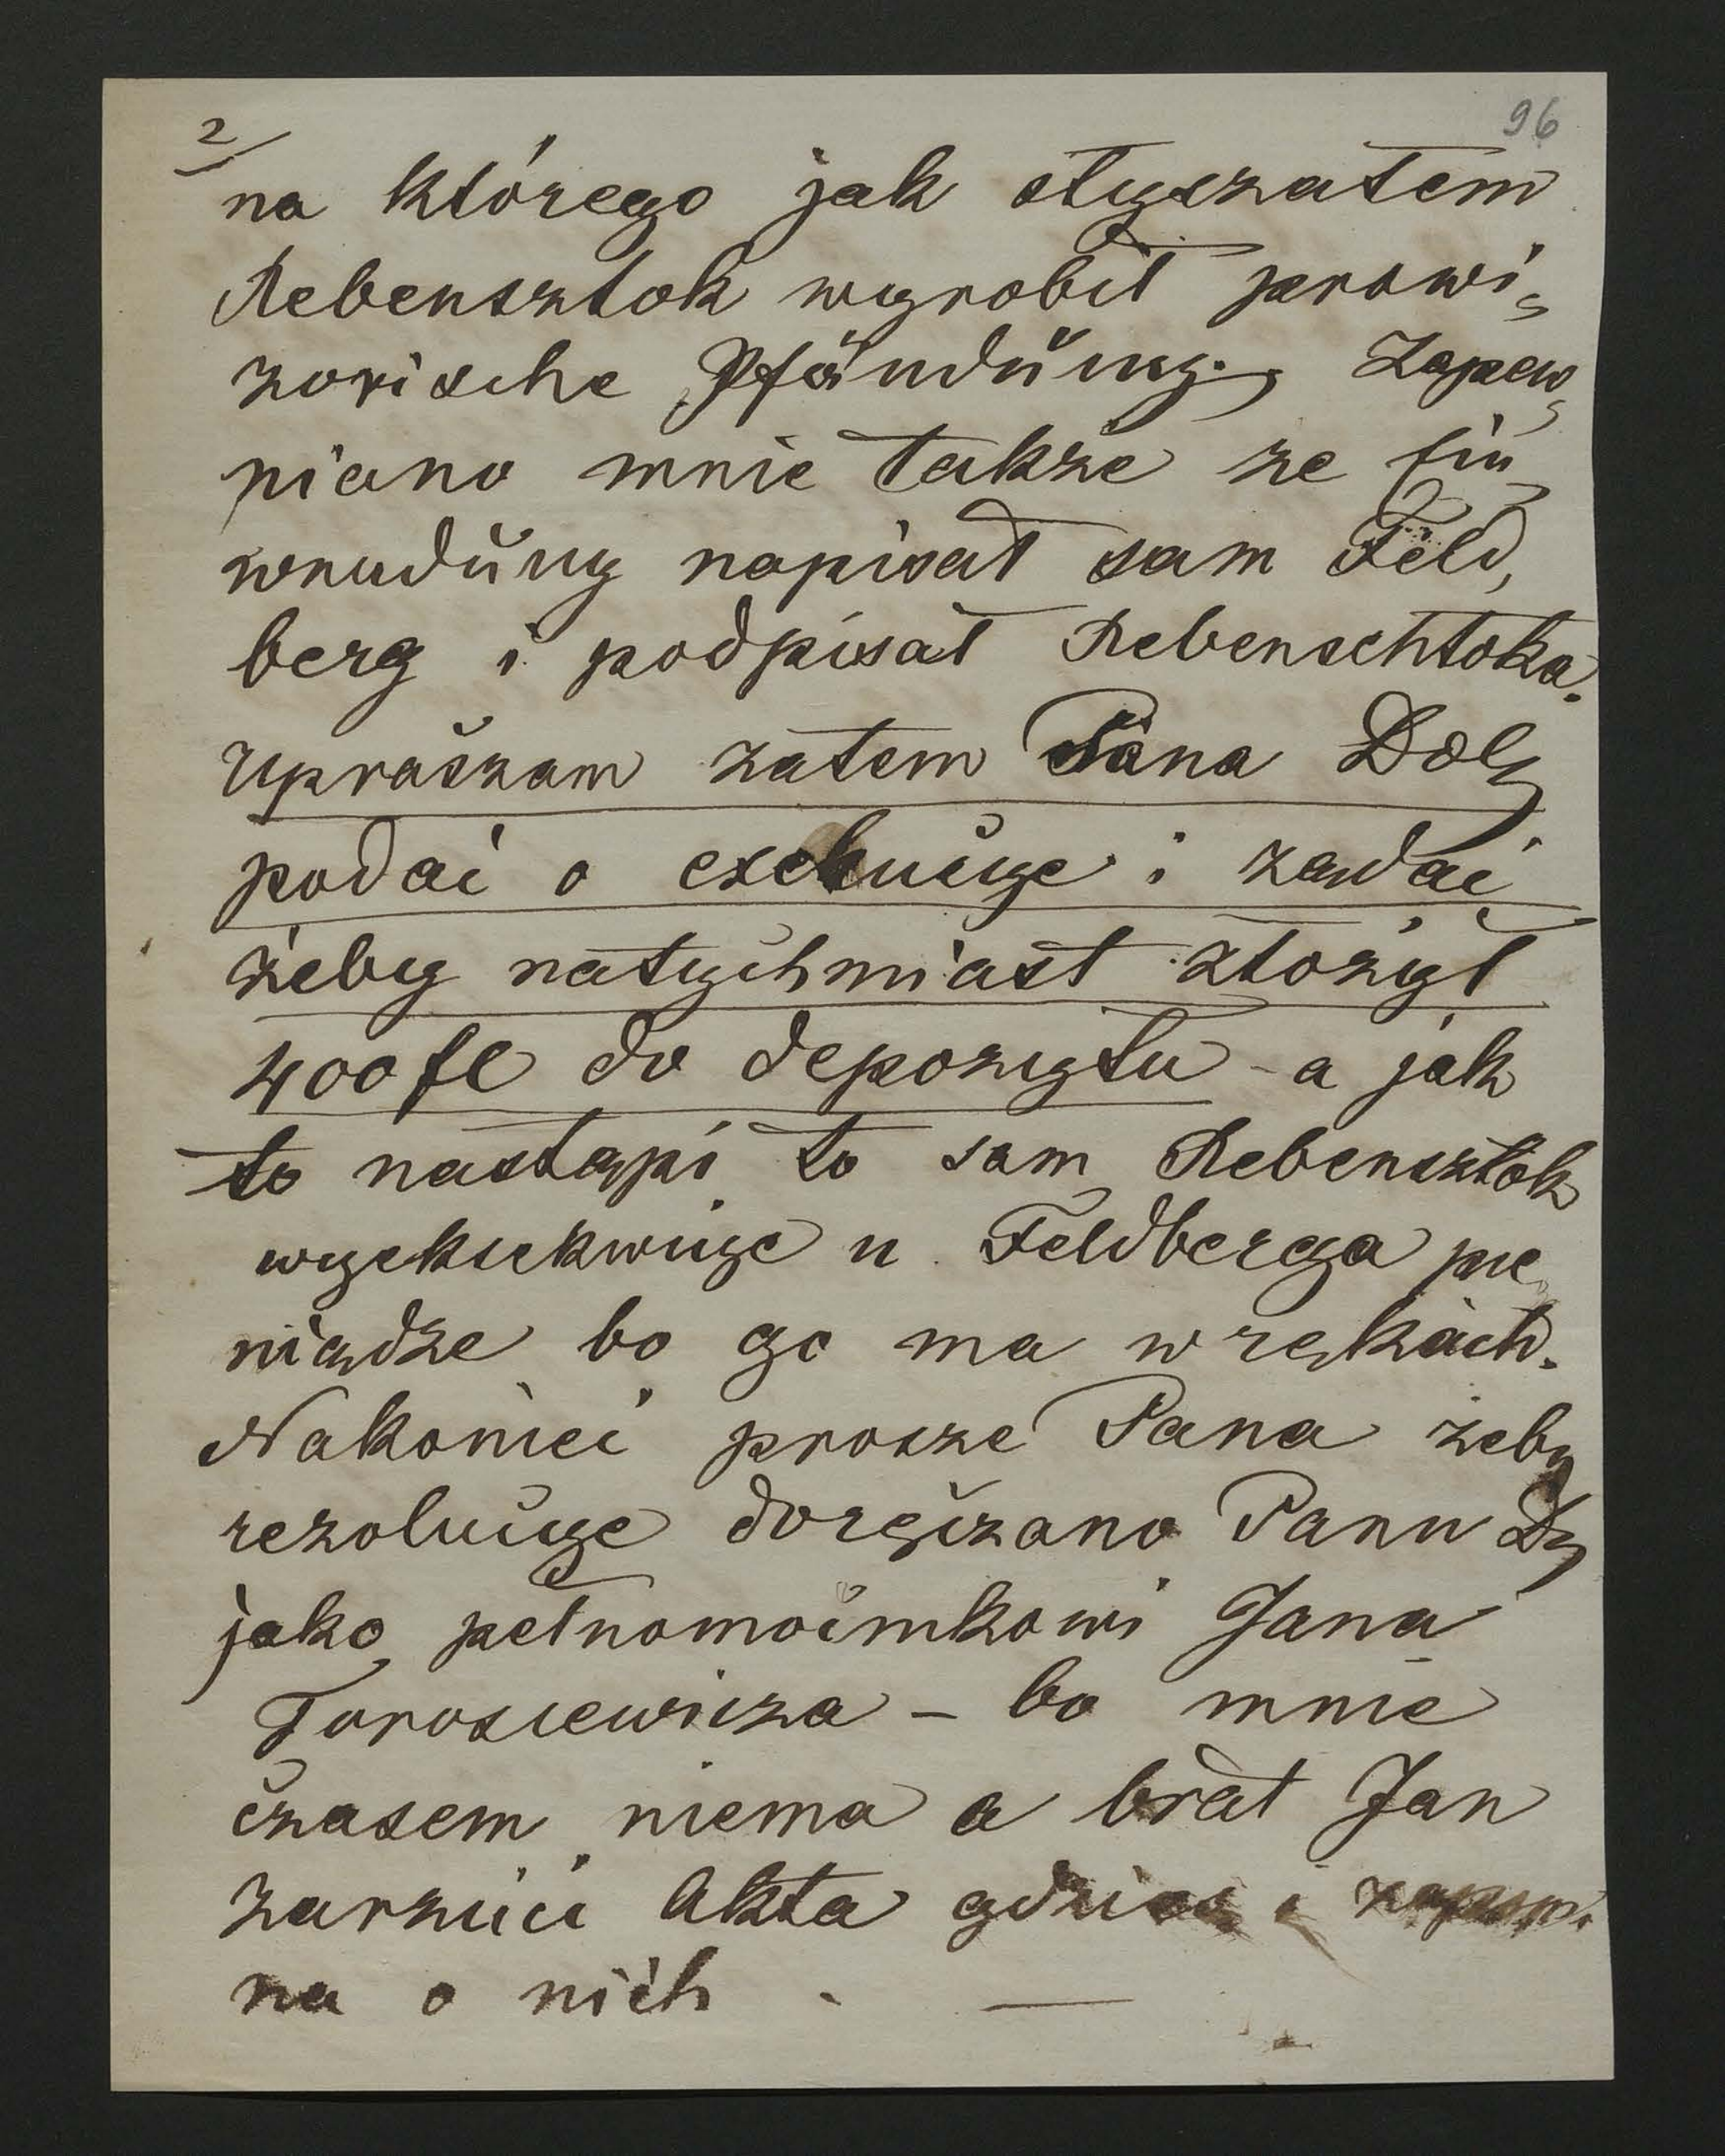 2/
96
na którego jak słyszałem
Rebensztok wyrobił prowi„
zorische Pfändung, Zapew„
niano mnie także że Ein„
wendung napisał sam Feld„
berg i podpisał Rebenschtoka.
Upraszam zatem Pana Dob
podać o exekucyę i żądać
żeby natychmiast złożył
400 fl do depozytu - a jak
to nastąpi to sam Rebensztok
wyeksekwuje u Feldberga pie„
niądze bo go ma w rękach.
Nakoniec prosze Pana żeby
rezolucyę doręczano Panu D
jako pełnomocnikowi Jana
Torosiewicza – bo mnie
czasem niema a brat Jan
zarzuci Akta gdzieś i zapomi
na o nich . —